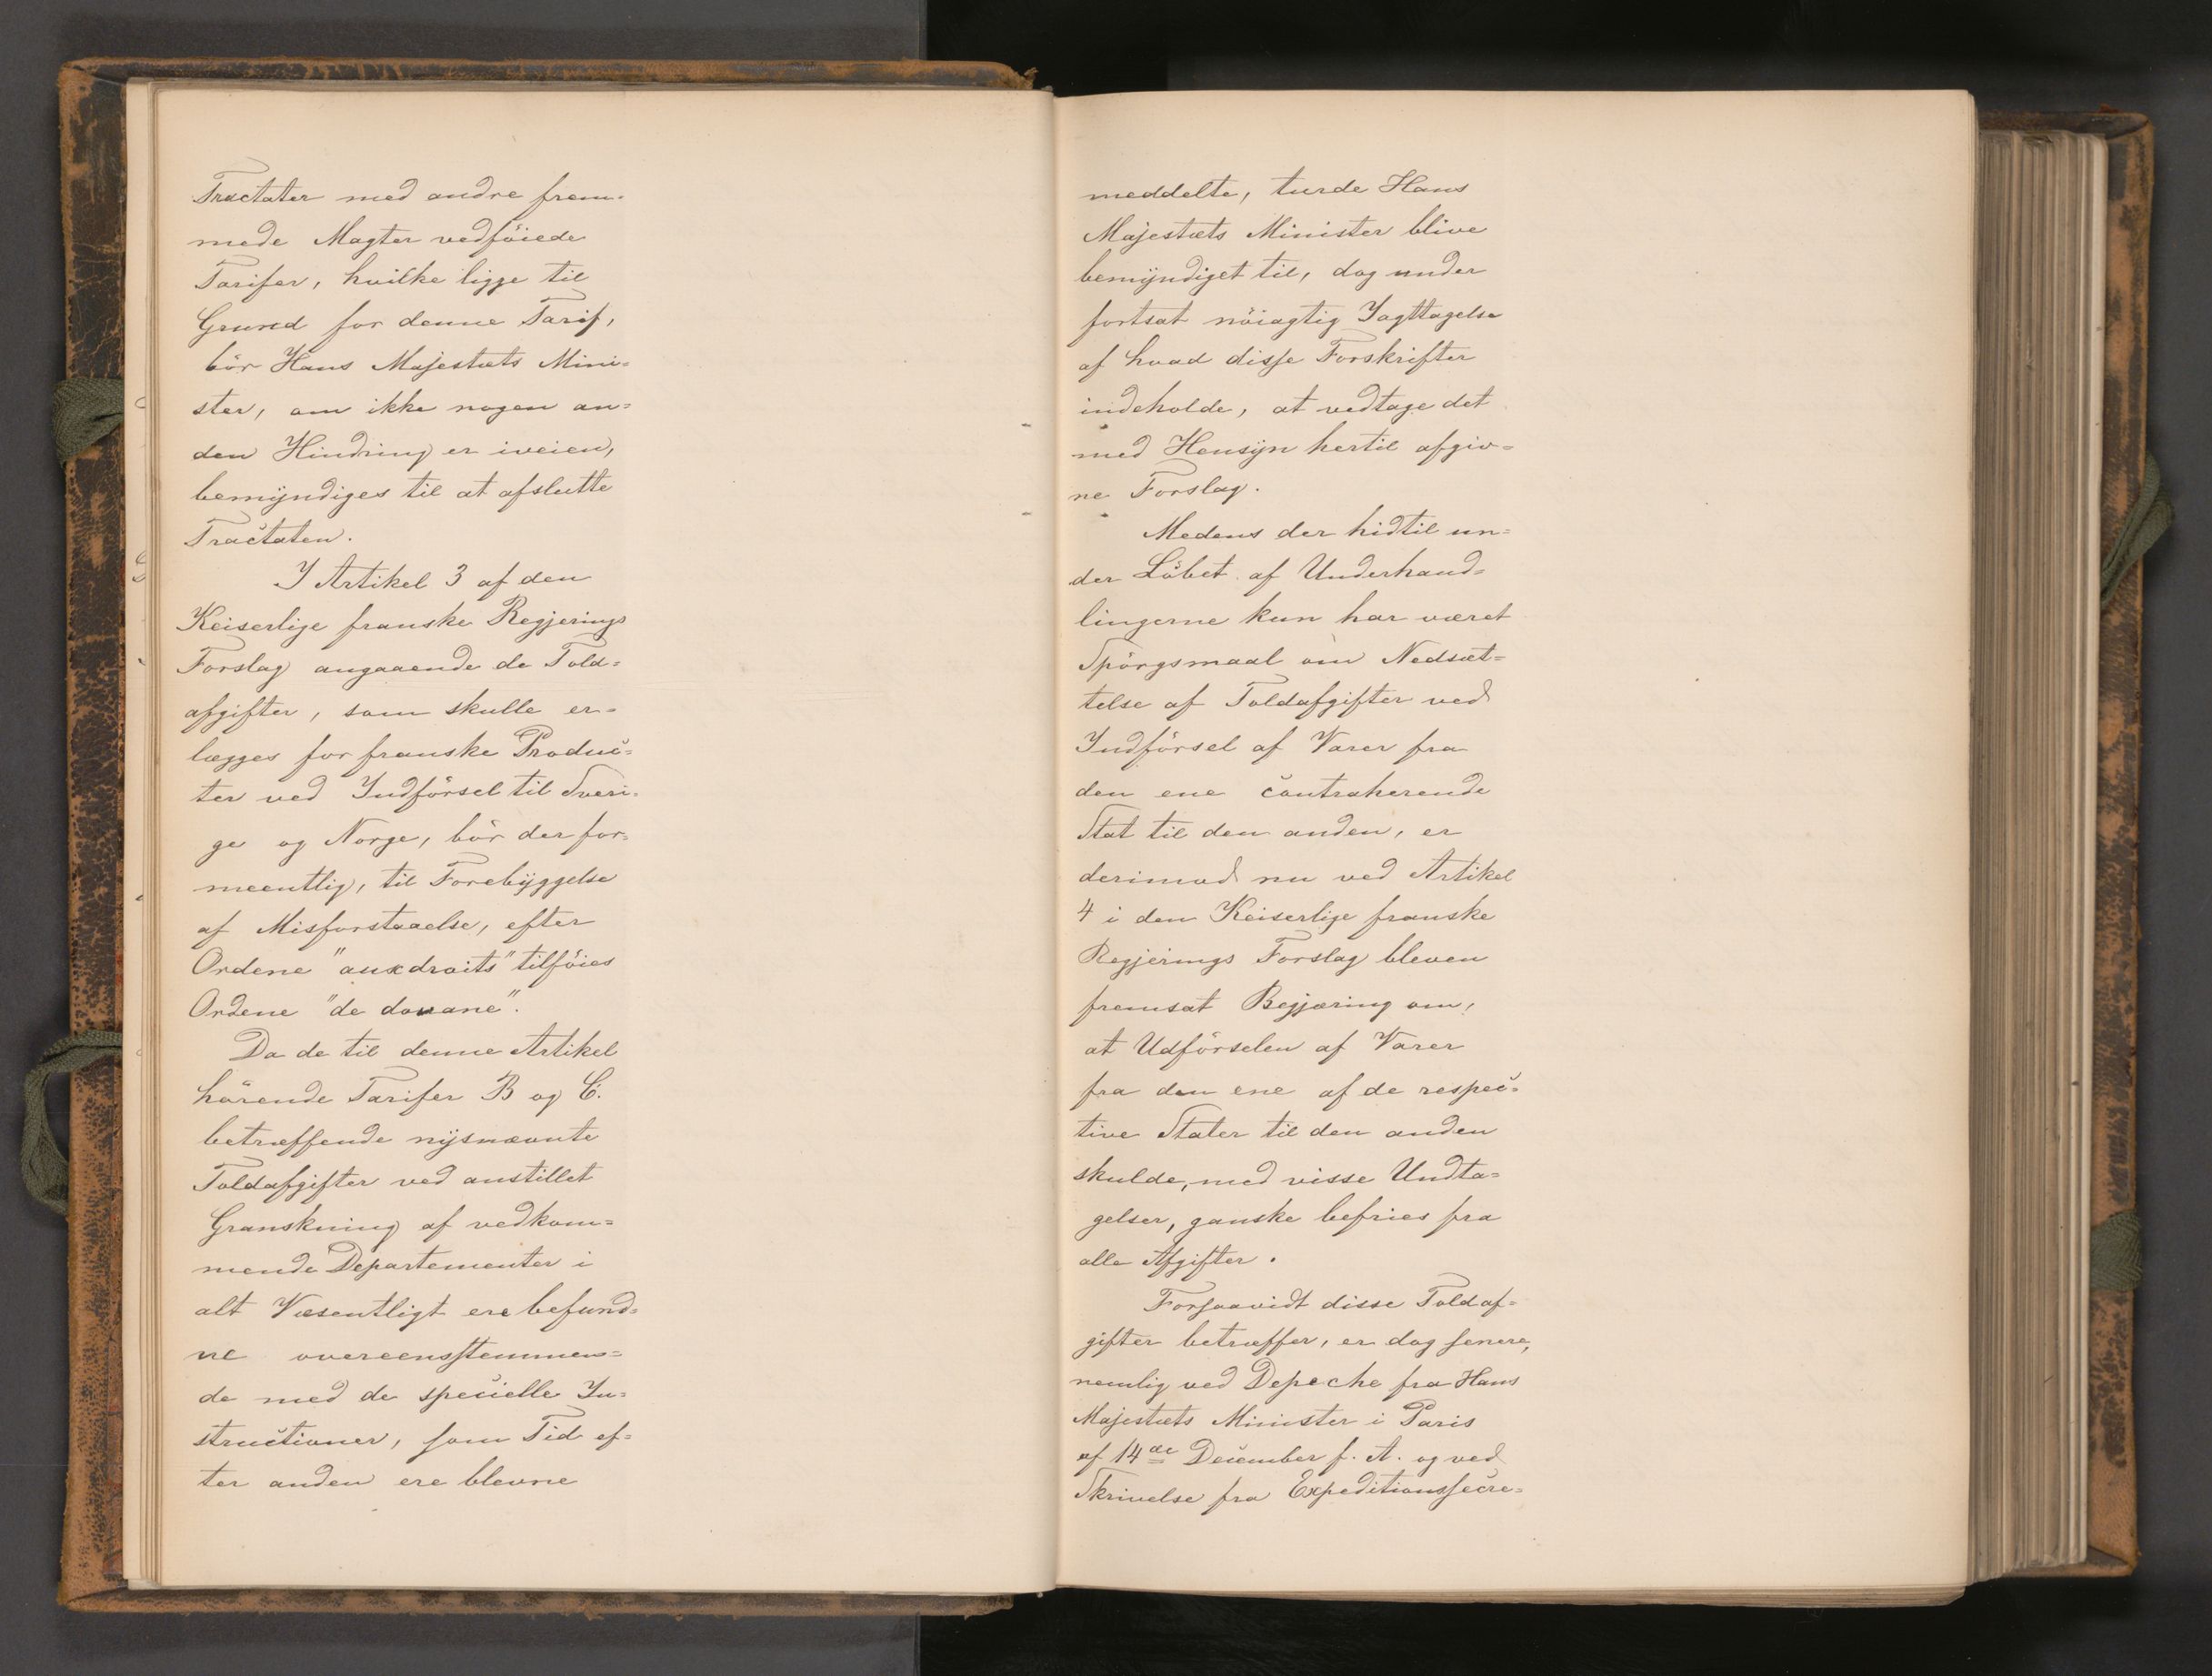 Tractater med andre frem-
mede Magter vedföiede
Tarifer, hvilke ligge til
Grund for denne Tarif,
bör Hans Majestæts Mini-
ster, om ikke nogen an-
den Hindring er iveien,
bemyndiges til at afslutte
Tractaten.
I Artikel 3 af den
Keiserlige franske Regjerings
Forslag angaaende de Told-
afgifter, som skulle er-
lægges for franske Produc-
ter ved Indförsel til Sveri-
ge og Norge, bör der for-
meentlig, til Forebyggelse
af Misforstaaelse, efter
Ordene "aux droits" tilföies
Ordene "de douane".
Da de til denne Artikel
hörende Tarifer B og C.
betræffende nysnævnte
Toldafgifter ved anstillet
Granskning af vedkom-
mende Departementer i
alt Væsentligt ere befund-
ne overeensstemmen-
de med de specielle In-
structioner, som Tid ef-
ter anden ere blevne
meddelte, turde Hans
Majestæts Minister blive
bemyndiget til, dog under
fortsat nöiagtig Iagttagelse
af hvad disse Forskrifter
indeholde, at vedtage det
med Hensyn hertil afgiv-
ne Forslag.
Medens der hidtil un-
der Löbet af Underhand-
lingerne kun har været
Spörgsmaal om Nedsæt-
telse af Toldafgifter ved
Indförsel af Varer fra
den ene contraherende
Stat til den anden, er
derimod nu ved Artikel
4 i den Keiserlige franske
Regjerings Forslag bleven
fremsat Begjæring om,
at Udförselen af Varer
fra den ene af de respec-
tive Stater til den anden
skulde, med visse Undta-
gelser, ganske befries fra
alle Afgifter.
Forsaavidt disse Toldaf-
gifter betræffer, er dog senere,
nemlig ved Depeche fra Hans
Majestæts Minister i Paris
af 14de December f. A. og ved
Skrivelse fra Expeditionssecre-